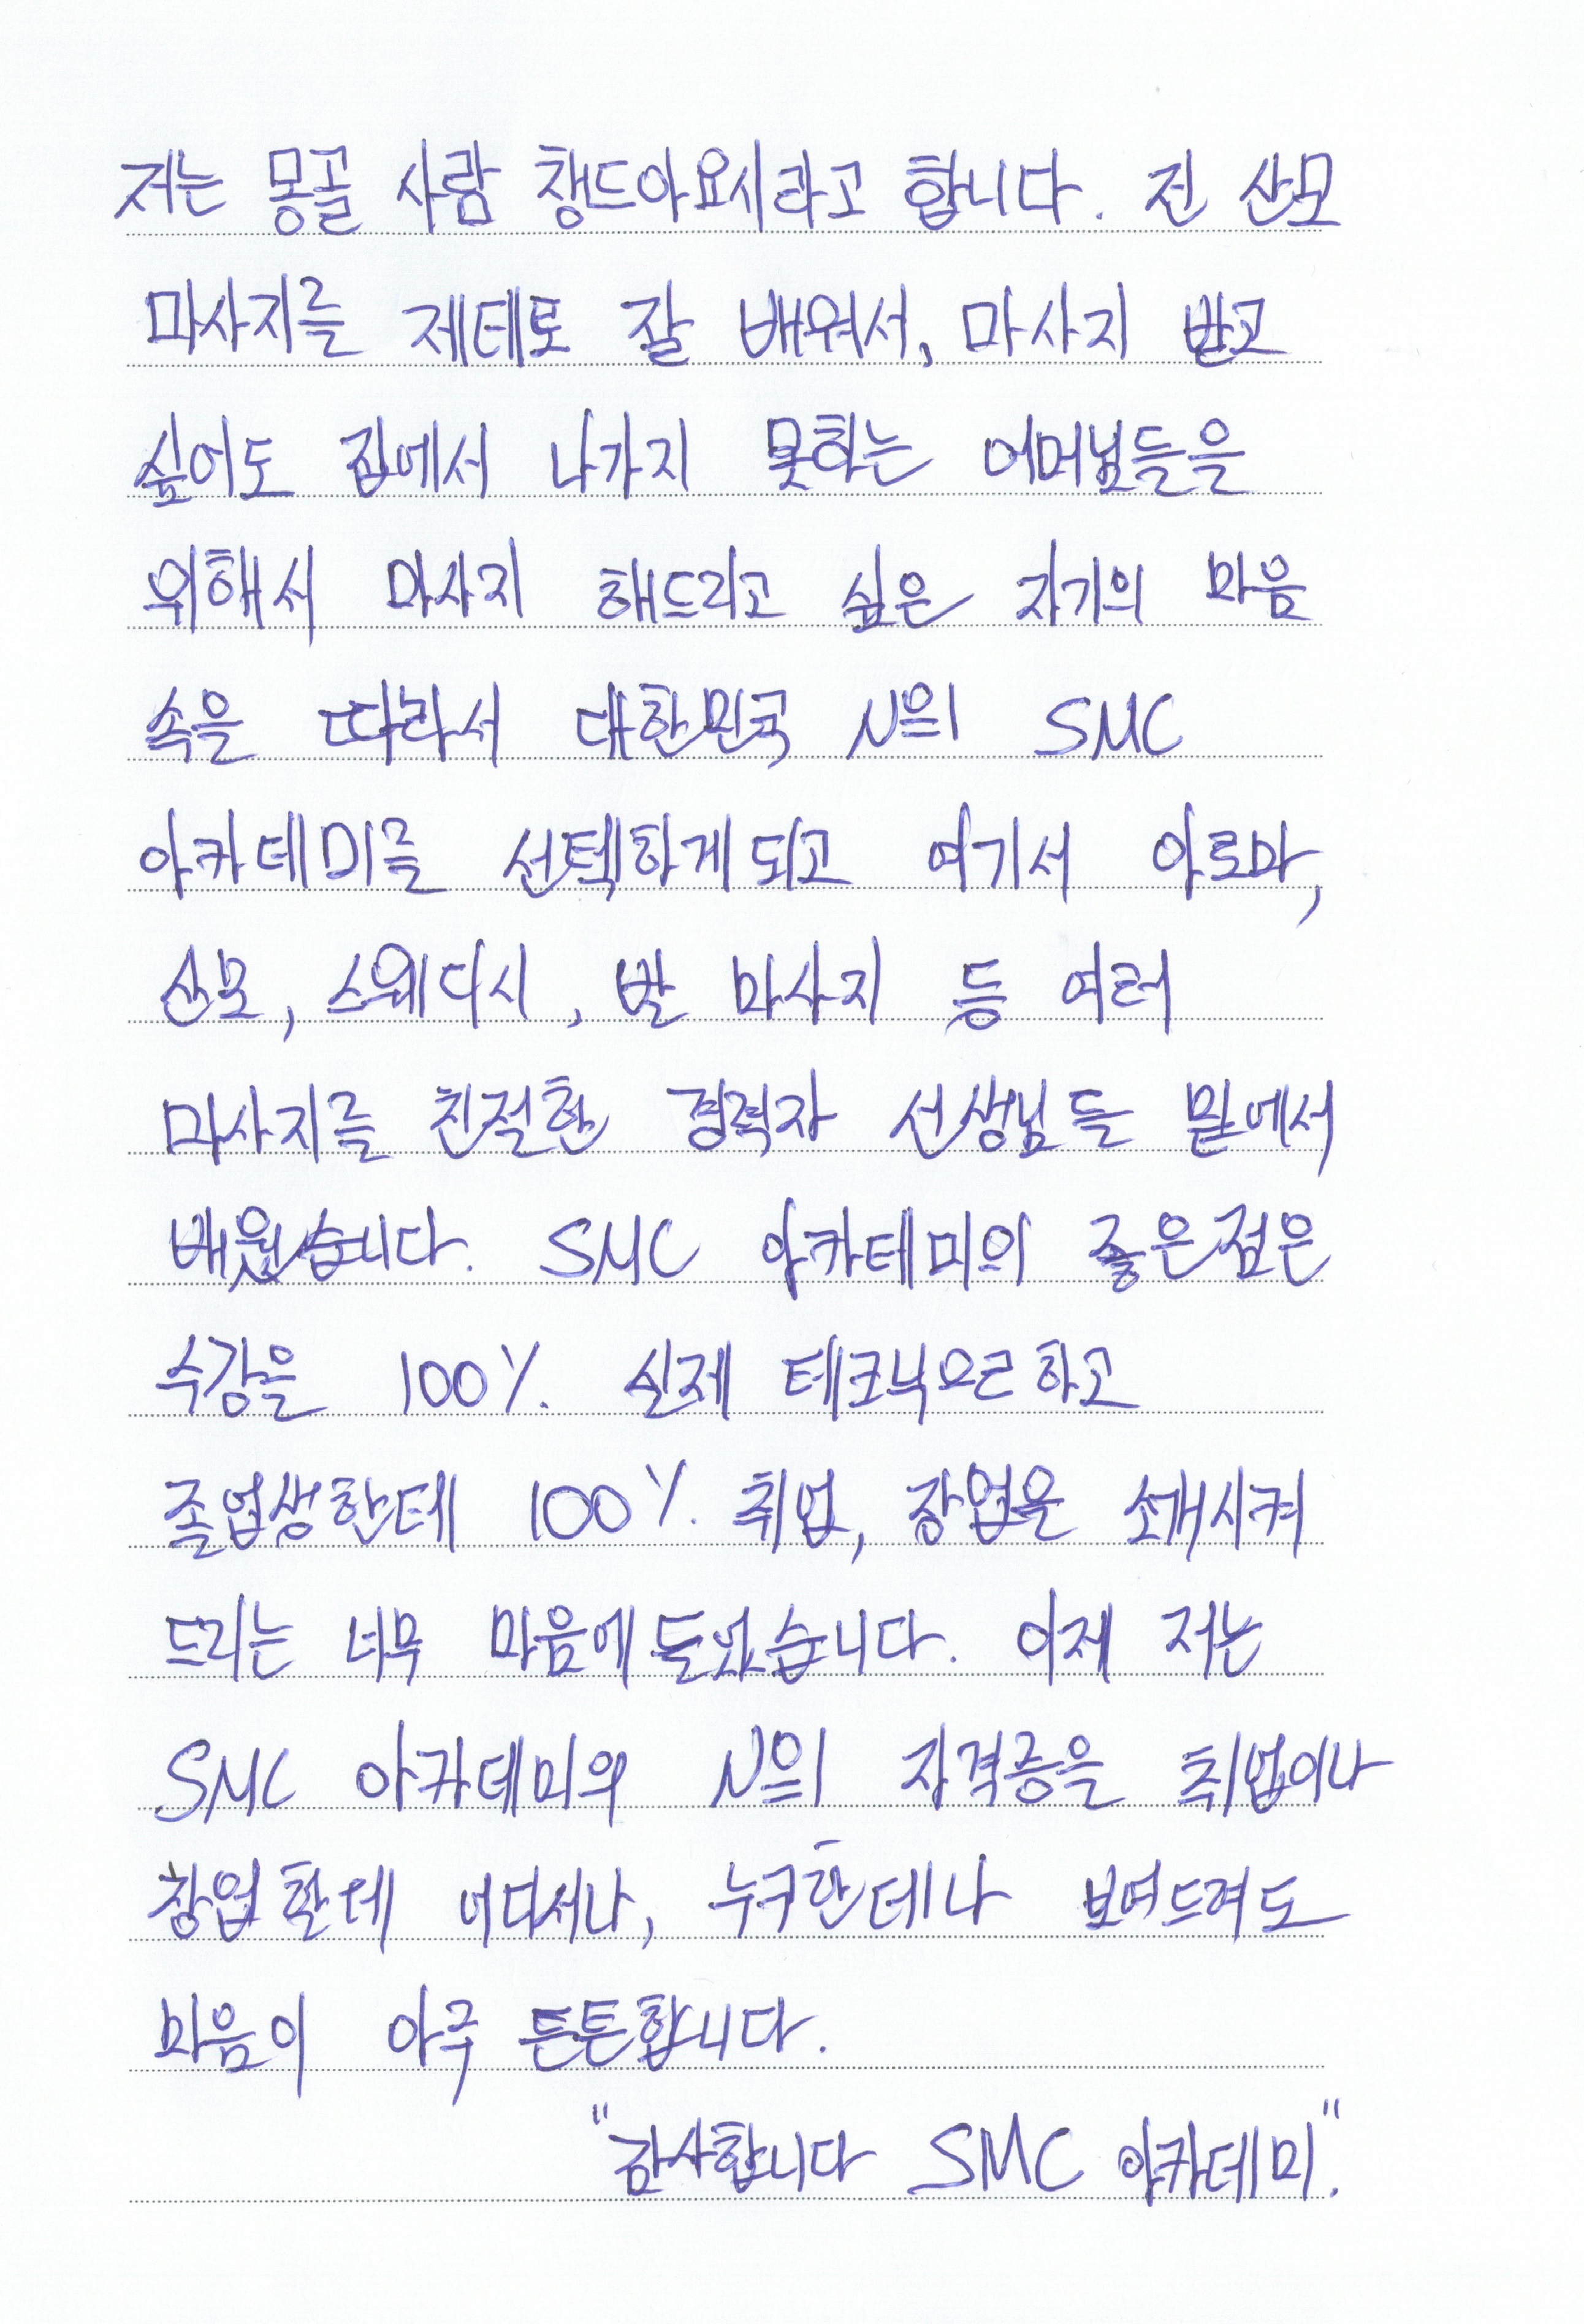 저는 몽골 사람 챙드아요시라고 합니다. 전 산모
마사지를 제테로 잘 배워서, 마사지 받고
싶어도 집에서 나가지 못하는 어머님들을
위해서 마사지 해드리고 싶은 자기의 마음
속을 따라서 대한민국 N의 SMC
아카데미를 선택하게되고 여기서 아로마,
산모, 스웨디시, 발 마사지 등 여러
마사지를 친절한 경력자 선생님들 밑에서
배웠습니다. SMC 아카데미의 좋은점은
수강을 100%. 실제 테크닉으로하고
졸업생한테 100%. 취업, 창업을 소개시켜
드리는 너무 마음에 들었습니다. 이제 저는
SMC 아카데미의 N의 자격증을 취업이나
창업할때 어디서나, 누구한테나 보여드려도
마음이 아주 든튼합니다.
"감사합니다 SMC 아카데미."